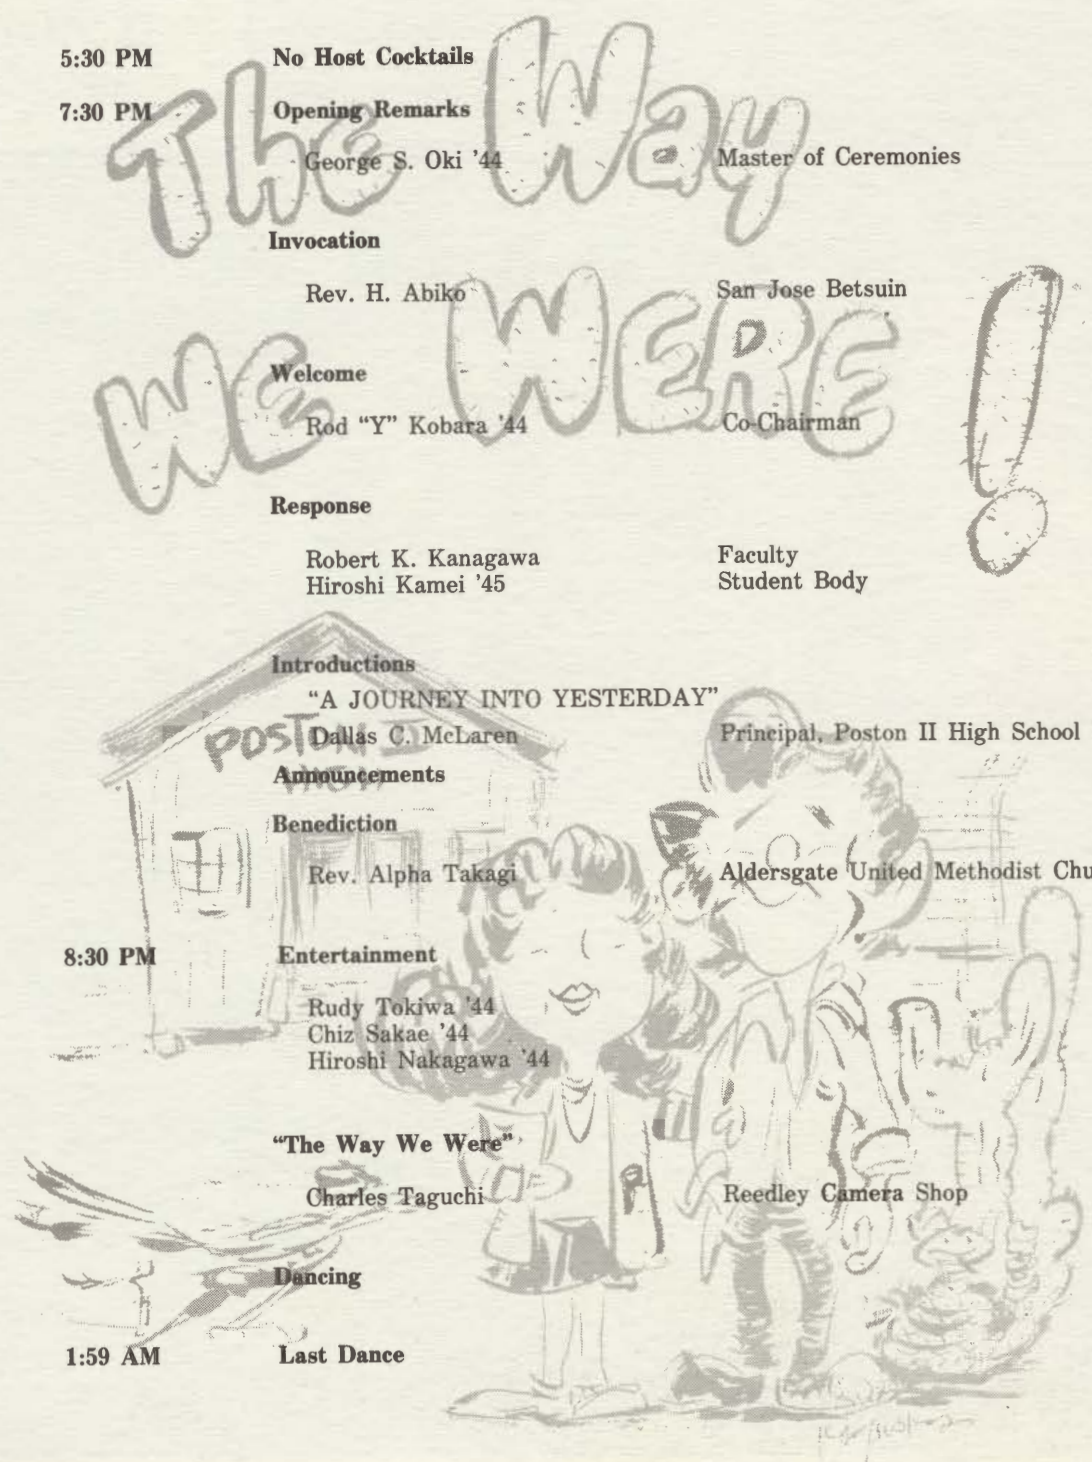 The Way
WE WERE!
5:30 PM No Host Cocktails
7:30 PM Opening Remarks
George S. Oki '44 Master of Ceremonies
Invocation
Rev. H. Abiko San Jose Betsuin
Welcome
Rod “Y” Kobara '44 Co-Chairman
Response
Robert K. Kanagawa Faculty
Hiroshi Kamei '45 Student Body
Introductions
“A JOURNEY INTO YESTERDAY”
POSTON II
HIGH
Dallas C. McLaren Principal, Poston II High School
Announcements
Benediction
Rev. Alpha Takagi Aldersgate United Methodist Chu
8:30 PM Entertainment
Rudy Tokiwa '44
Chiz Sakae '44
Hiroshi Nakagawa '44
“The Way We Were”
P
Charles Taguchi Reedley Camera Shop
Dancing
1:59 AM Last Dance